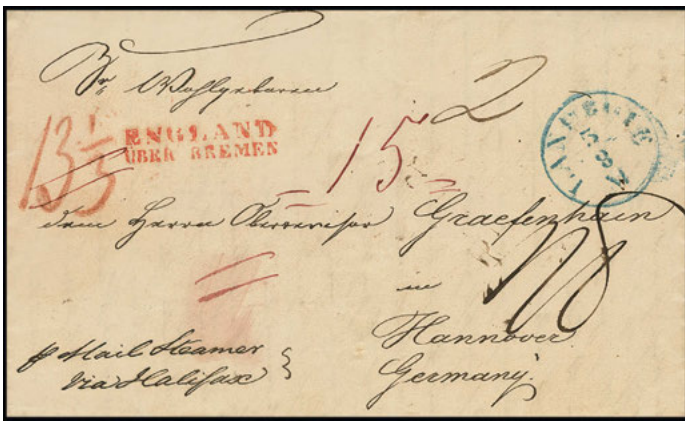 Sr. Wohlgeboren
2
13 1/3
ENGLAND
ÜBER BREMEN
15
dem Herrn Oberrevisor Graefenhain
in
Hannover
Germany.
p Mail Steamer
via Halifax